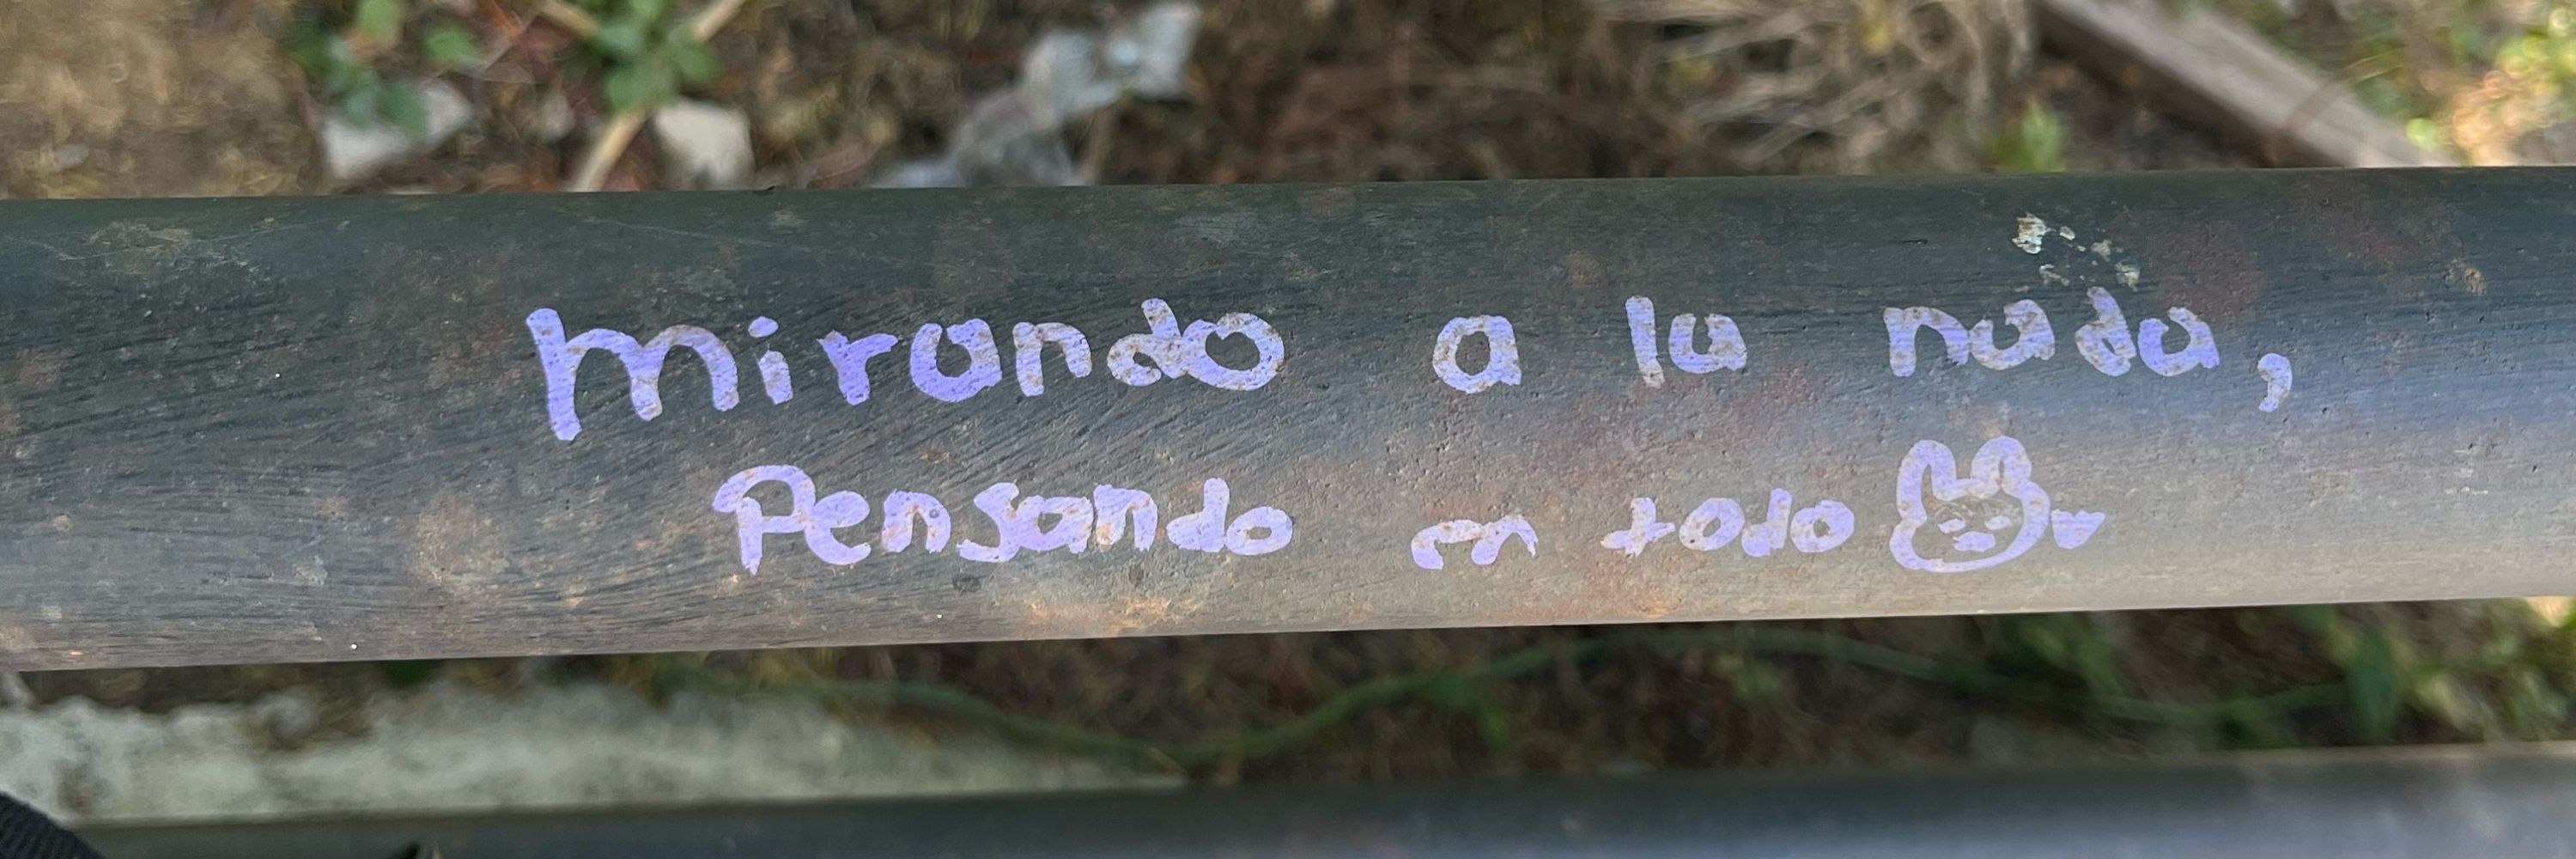 Mirando a la nada,
Pensando en todo